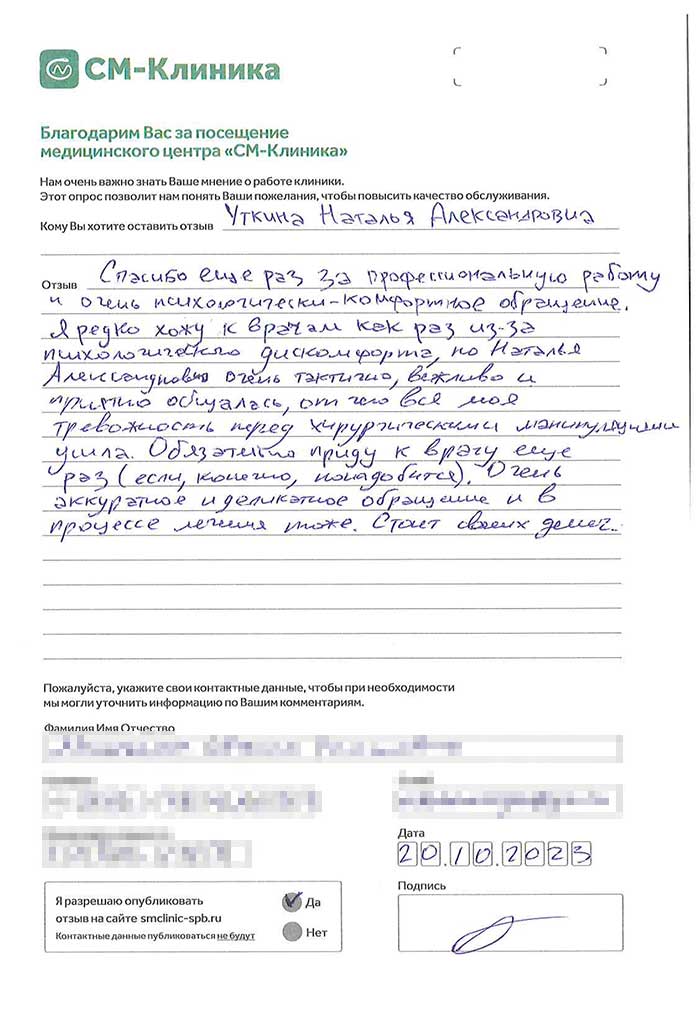 СМ-Клиника
Благодарим Вас за посещение
медицинского центра «СМ-Клиника»
Нам очень важно знать Ваше мнение о работе клиники.
Этот опрос позволит нам понять Ваши пожелания, чтобы повысить качество обслуживания.
Кому Вы хотите оставить отзыв Уткина Наталья Александровна
Отзыв Спасибо еще раз за профессиональную работу
и очень психологически-комфортное обращение.
Я редко хожу к врачам как раз из-за
психологического дискомфорта, но Наталья
Александровна очень тактично, вежливо и
приятно общалась, от чего вся моя
тревожность перед хирургическими манипуляциями
ушла. Обязательно приду к врачу еще
раз (если, конечно, понадобится). Очень
аккуратное и деликатное обращение и в
процессе лечения тоже. Стоит своих денег.
Пожалуйста, укажите свои контактные данные, чтобы при необходимости
мы могли уточнить информацию по Вашим комментариям.
Фамилия Имя Отчество
Дата
20.10.2023
Подпись
Я разрешаю опубликовать
отзыв на сайте smclinic-spb.ru
Контактные данные публиковаться не будут
Да
Нет